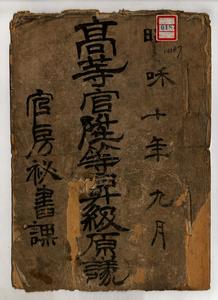 昭咊十年九月
高等官陞等昇級原議
官房祕書課